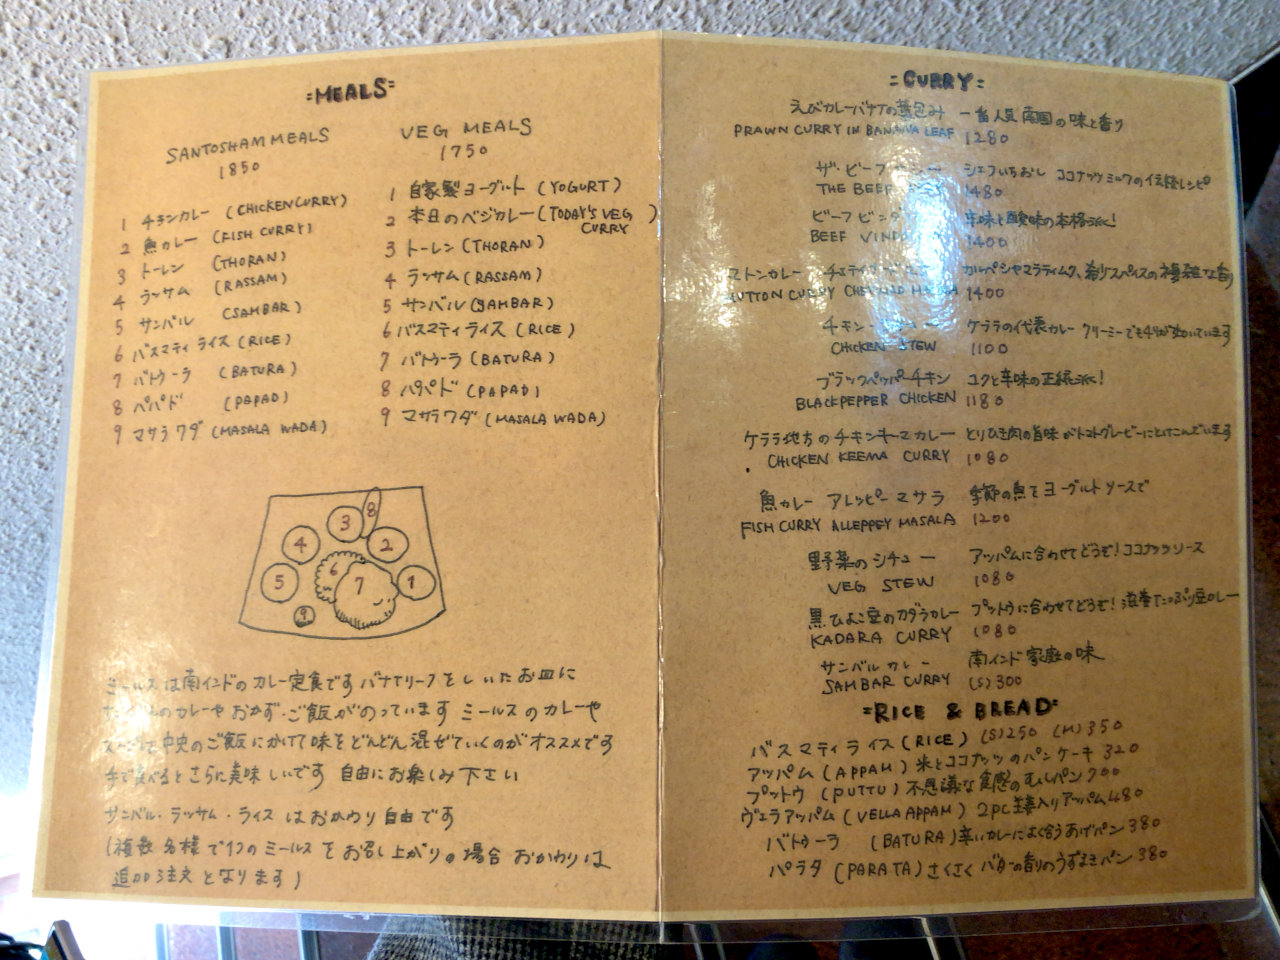 =MEALS=
SANTOSHAM MEALS
1850
1 チキンカレー (CHICKEN CURRY)
2 魚カレー (FISH CURRY)
3 トーレン (THORAN)
4 ラッサム (RASSAM)
5 サンバル (SAMBAR)
6 バスマティライス (RICE)
7 バトゥーラ (BATURA)
8 パパド (PAPAD)
9 マサラワダ (MASALA WADA)
VEG MEALS
1750
1 自家製ヨーグルト (YOGURT)
2 本日のベジカレー (TODAY'S VEG CURRY)
3 トーレン (THORAN)
4 ラッサム (RASSAM)
5 サンバル (SAMBAR)
6 バスマティライス (RICE)
7 バトゥーラ (BATURA)
8 パパド (PAPAD)
9 マサラワダ (MASALA WADA)
8
3
4
2
6
5
7
1
9
ミールスは南インドのカレー定食です バナナリーフをしいたお皿に
のカレーやおかず・ご飯がのっています ミールスのカレーや
中央のご飯にかけて味をどんどん混ぜていくのがオススメです
手で食べるとさらに美味しいです 自由にお楽しみ下さい
サンバル・ラッサム・ライスはおかわり自由です
(複数名様で1つのミールスをお召し上がりの場合おかわりは
追加注文となります)
=CURRY=
えびカレーバナナの葉包み 一番人気 南国の味と香り
PRAWN CURRY IN BANANA LEAF 1280
ザ・ビーフ シェフいちおし ココナッツミルクの伝統レシピ
THE BEEF 1480
ビーフビンダ 辛味と酸味の本格派!
BEEF VIND 1400
マトンカレー カルペシヤマラティムク、香りスパイスの複雑な香り
MUTTON CURRY 1400
チキン ケララの代表カレー クリーミーでも辛りが効いています
CHICKEN STEW 1100
ブラックペッパーチキン コクと辛味の正統派!
BLACKPEPPER CHICKEN 1180
ケララ地方のチキンキーマカレー とりひき肉の旨味がトマトグレービーにとけこんでいます
CHICKEN KEEMA CURRY 1080
魚カレー アレッピーマサラ 季節の魚でヨーグルトソースで
FISH CURRY ALLEPPEY MASALA 1200
野菜のシチュー アッパムに合わせてどうぞ!ココナッツソース
VEG STEW 1080
黒ひよこ豆のカダラカレー プットゥに合わせてどうぞ!滋養たっぷり豆カレー
KADARA CURRY 1080
サンバルカレー 南インド家庭の味
SAMBAR CURRY (S)300
=RICE & BREAD=
バスマティライス (RICE) (S)250 (M)350
アッパム (APPAM) 米とココナッツのパンケーキ 320
プットゥ (PUTTU) 不思議な食感のむしパン 700
ヴェラアッパム (VELLAAPPAM) 2pc 入りアッパム 480
バトゥーラ (BATURA) 辛いカレーによく合うあげパン 380
パラタ (PARATA) さくさくバターの香りのうずまきパン 380